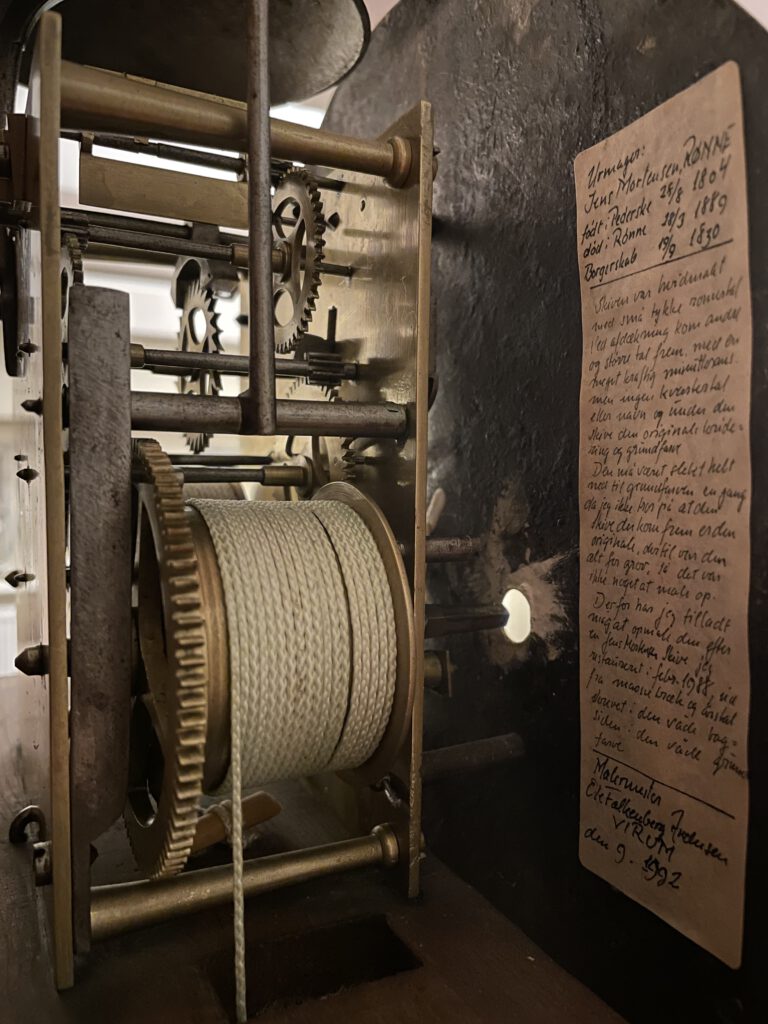 Urmager:
Jens Mortensen, RØNNE
født i Pederske 25/8 1804
död i Rønne 28/3 1889
Borgerskab 19/9 1830
Skiven var hvidmalt
med små tykke romertal
Ved afdækning kom andre
og större tal frem, med en
meget kraftig minuttkrans.
men ingen kvarterstal
eller navn og under den
skive den originale
og grundfarve
Den må været slebet helt
ned til grundfarven en gang
da jeg ikke tror på at den
skive der kom frem er den
originale, dertil var den
alt for grov, så det var
ikke noget at male op.
Derfor har jeg tilladt
mig at opmale den efter
en Jens Mortensen skive jeg
restaureret i febr. 1988, ud
fra
skrevet i den våde bag-
siden i den våde
farve
Malermester
Falkenberg
VIRUM
den 9. 1992